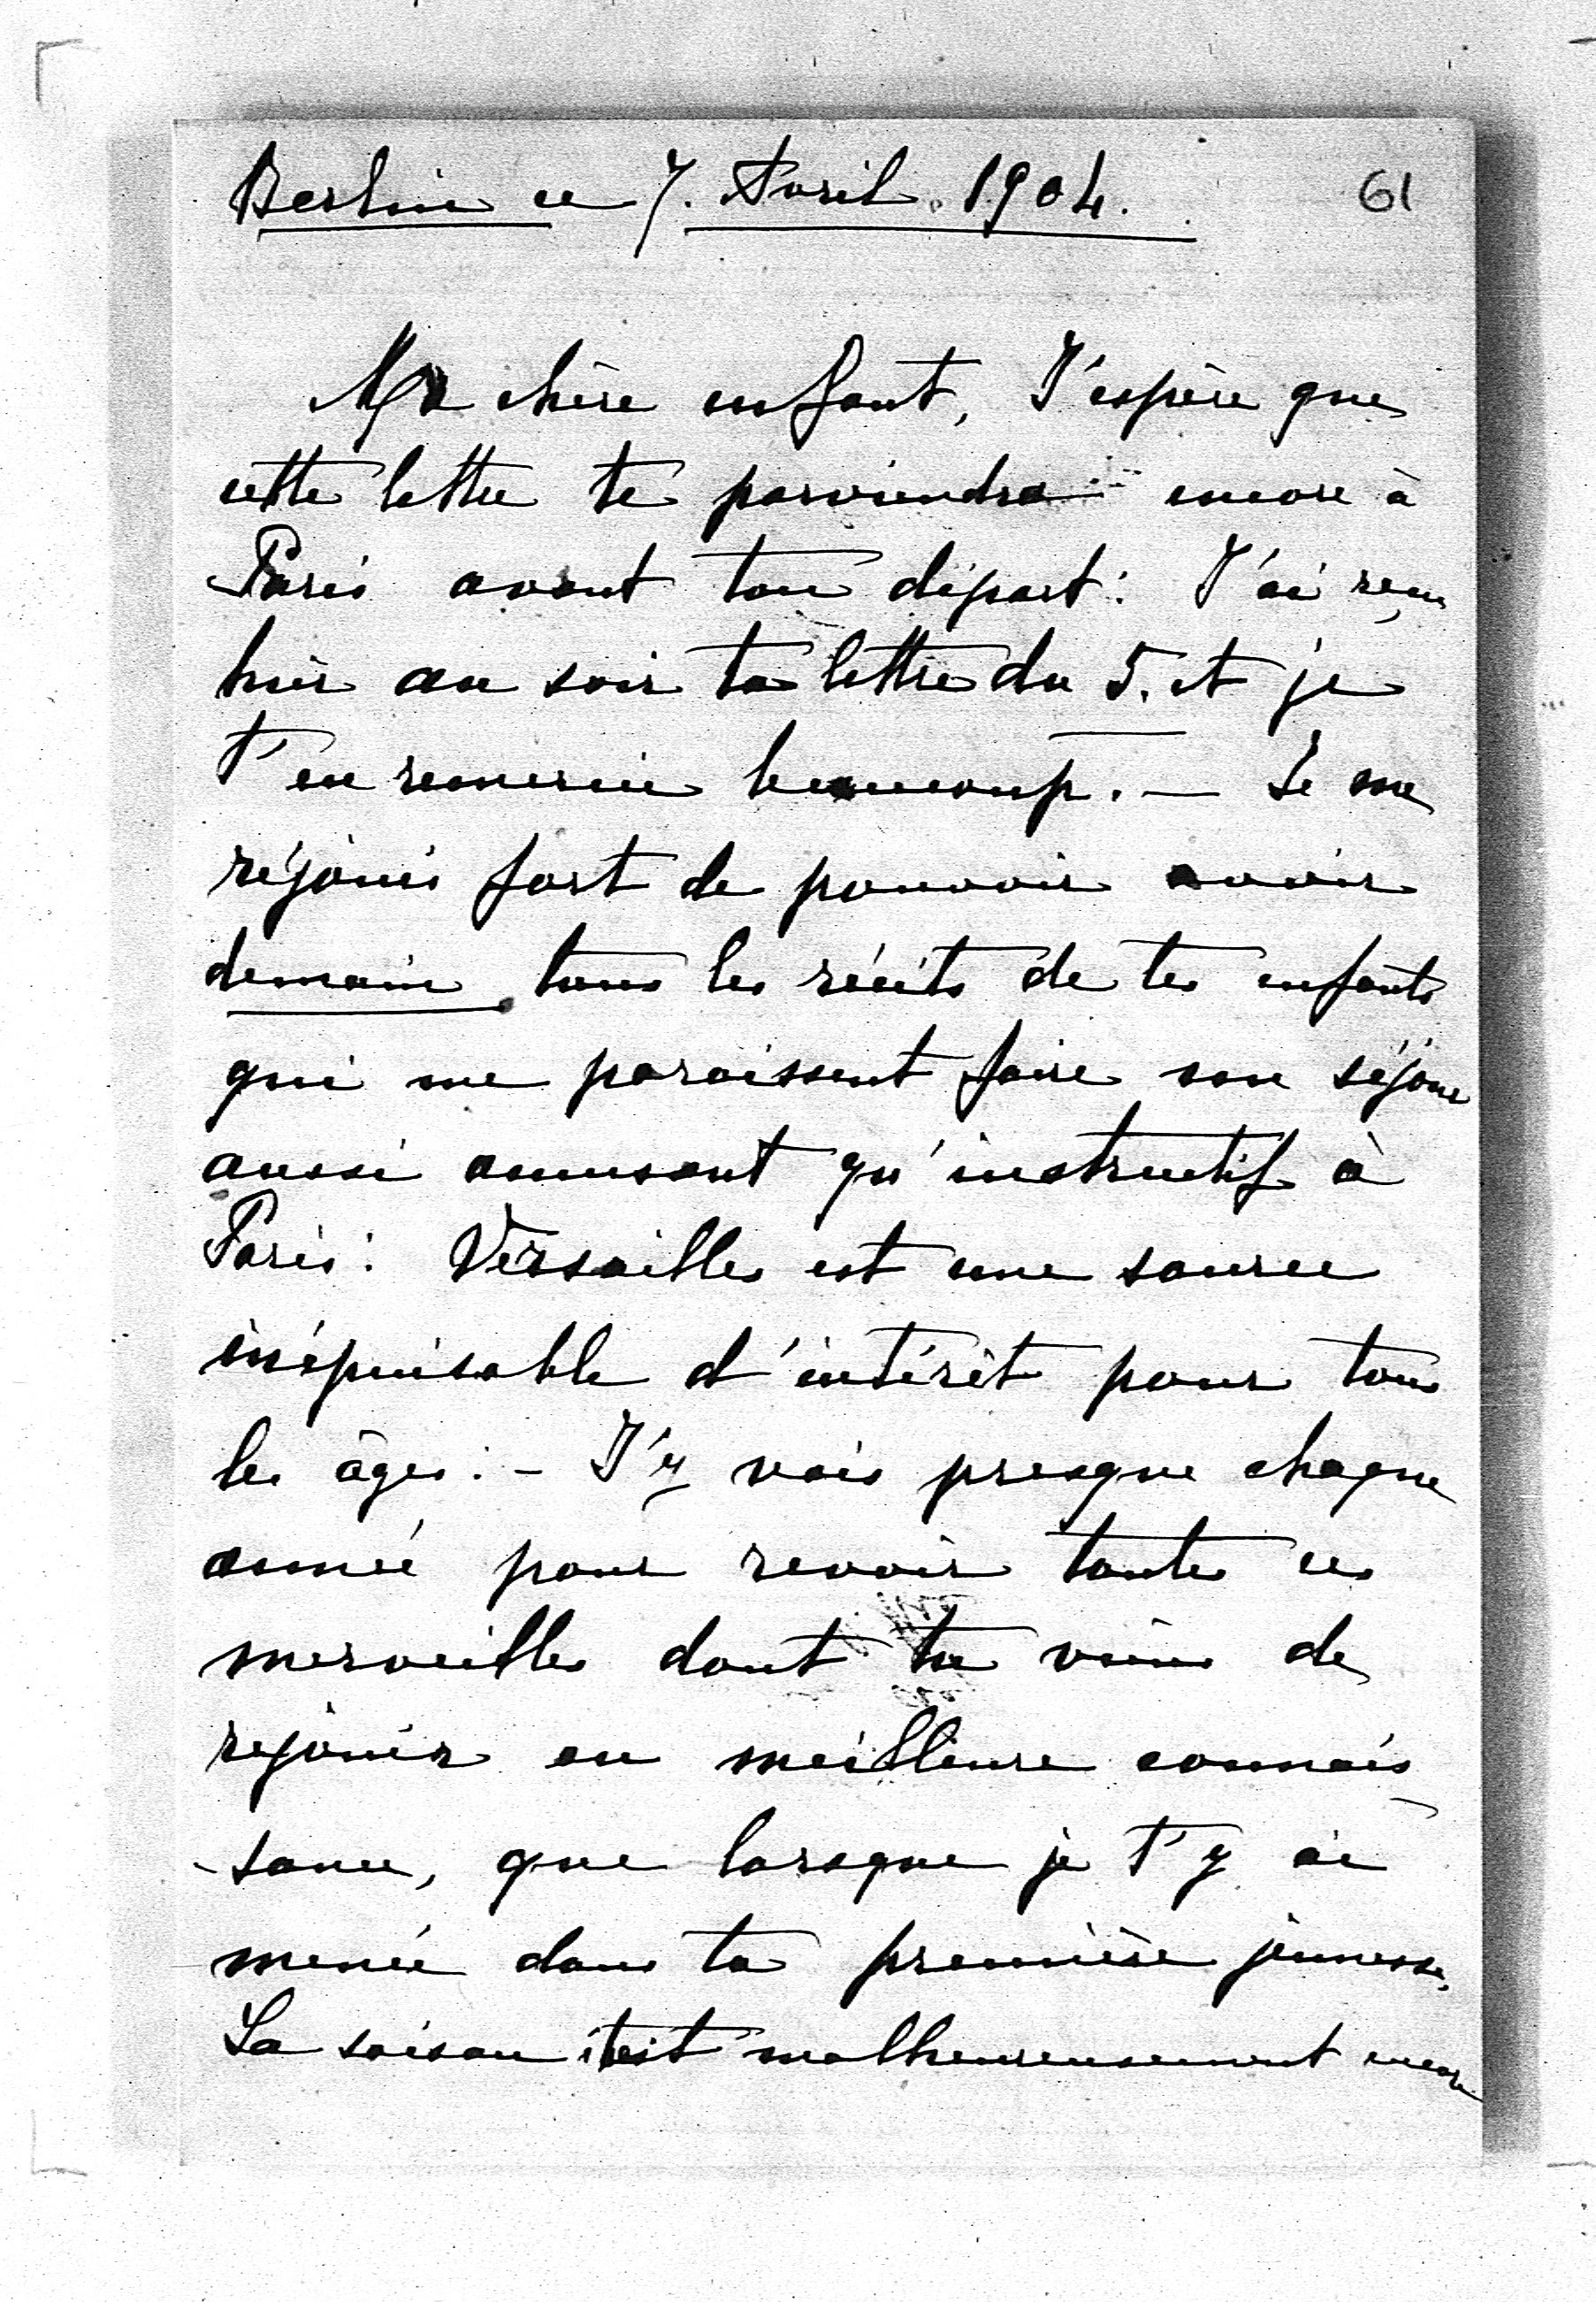 Berlin ce 7. Avril. 1904.
61
Ma chère enfant, J'espère que
cette lettre te parviendra encore à
Paris avant ton départ: J'ai reçu
hier au soir ta lettre du 5. et je
t'en remercie beaucoup. — Je me
réjouis fort de pouvoir avoir
demain tous les récits de tes enfants
qui me paraissent faire un séjour
aussi amusant qu'instructif à
Paris: Versailles est une source
inépuisable d'intérêt pour tous
les âges: – J'y vais presque chaque
année pour revoir toutes ces
merveilles dont tu viens de
en meilleure connais
-sance, que lorsque je t'y ai
menée dans ta première jeunesse,
La saison était malheureusement encore